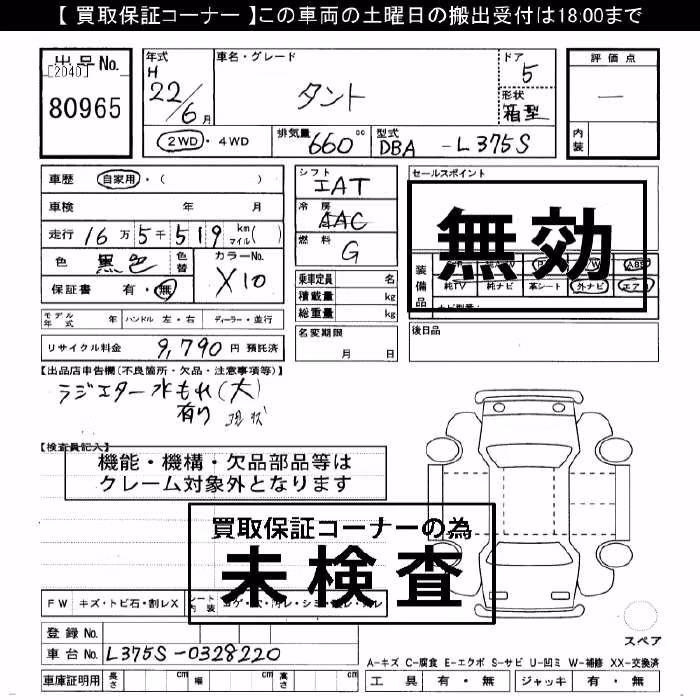 【 買取保証コーナー 】この車両の土曜日の搬出受付は18:00まで
出品No.
[2040]
80965
年式
H
22/6月
車名・グレード
タント
ドア
5
形状
箱型
評価点
—
内装
2WD・4WD
排気量 660 cc
型式 DBA -L375S
車歴 自家用・( )
車検 年 月
走行 16万5千519 km マイル( )
色 黒色 色替
カラーNo.
X10
保証書 有・無
モデル年式 年 ハンドル 左・右 ディーラー・並行
リサイクル料金 9,790 円 預託済
シフト
IAT
冷房
AAC
燃料
G
乗車定員 名
積載量 kg
総重量 kg
名変期限
月 日
セールスポイント
無効
装備品
純TV 純ナビ 革シート 外ナビ エア
後日品
【出品店申告欄(不良箇所・欠品・注意事項等)】
ラジエター水もれ(大)
有り 現状
【検査員記入】
機能・機構・欠品部品等は
クレーム対象外となります
買取保証コーナーの為
未検査
FW キズ・トビ石・割レX
登録No.
車台No. L375S-0328220
車庫証明用 長さ cm 幅 cm 高さ cm
スペア
A-キズ C-腐食 E-エクボ S-サビ U-凹ミ W-補修 XX-交換済
工具 有・無 ジャッキ 有・無